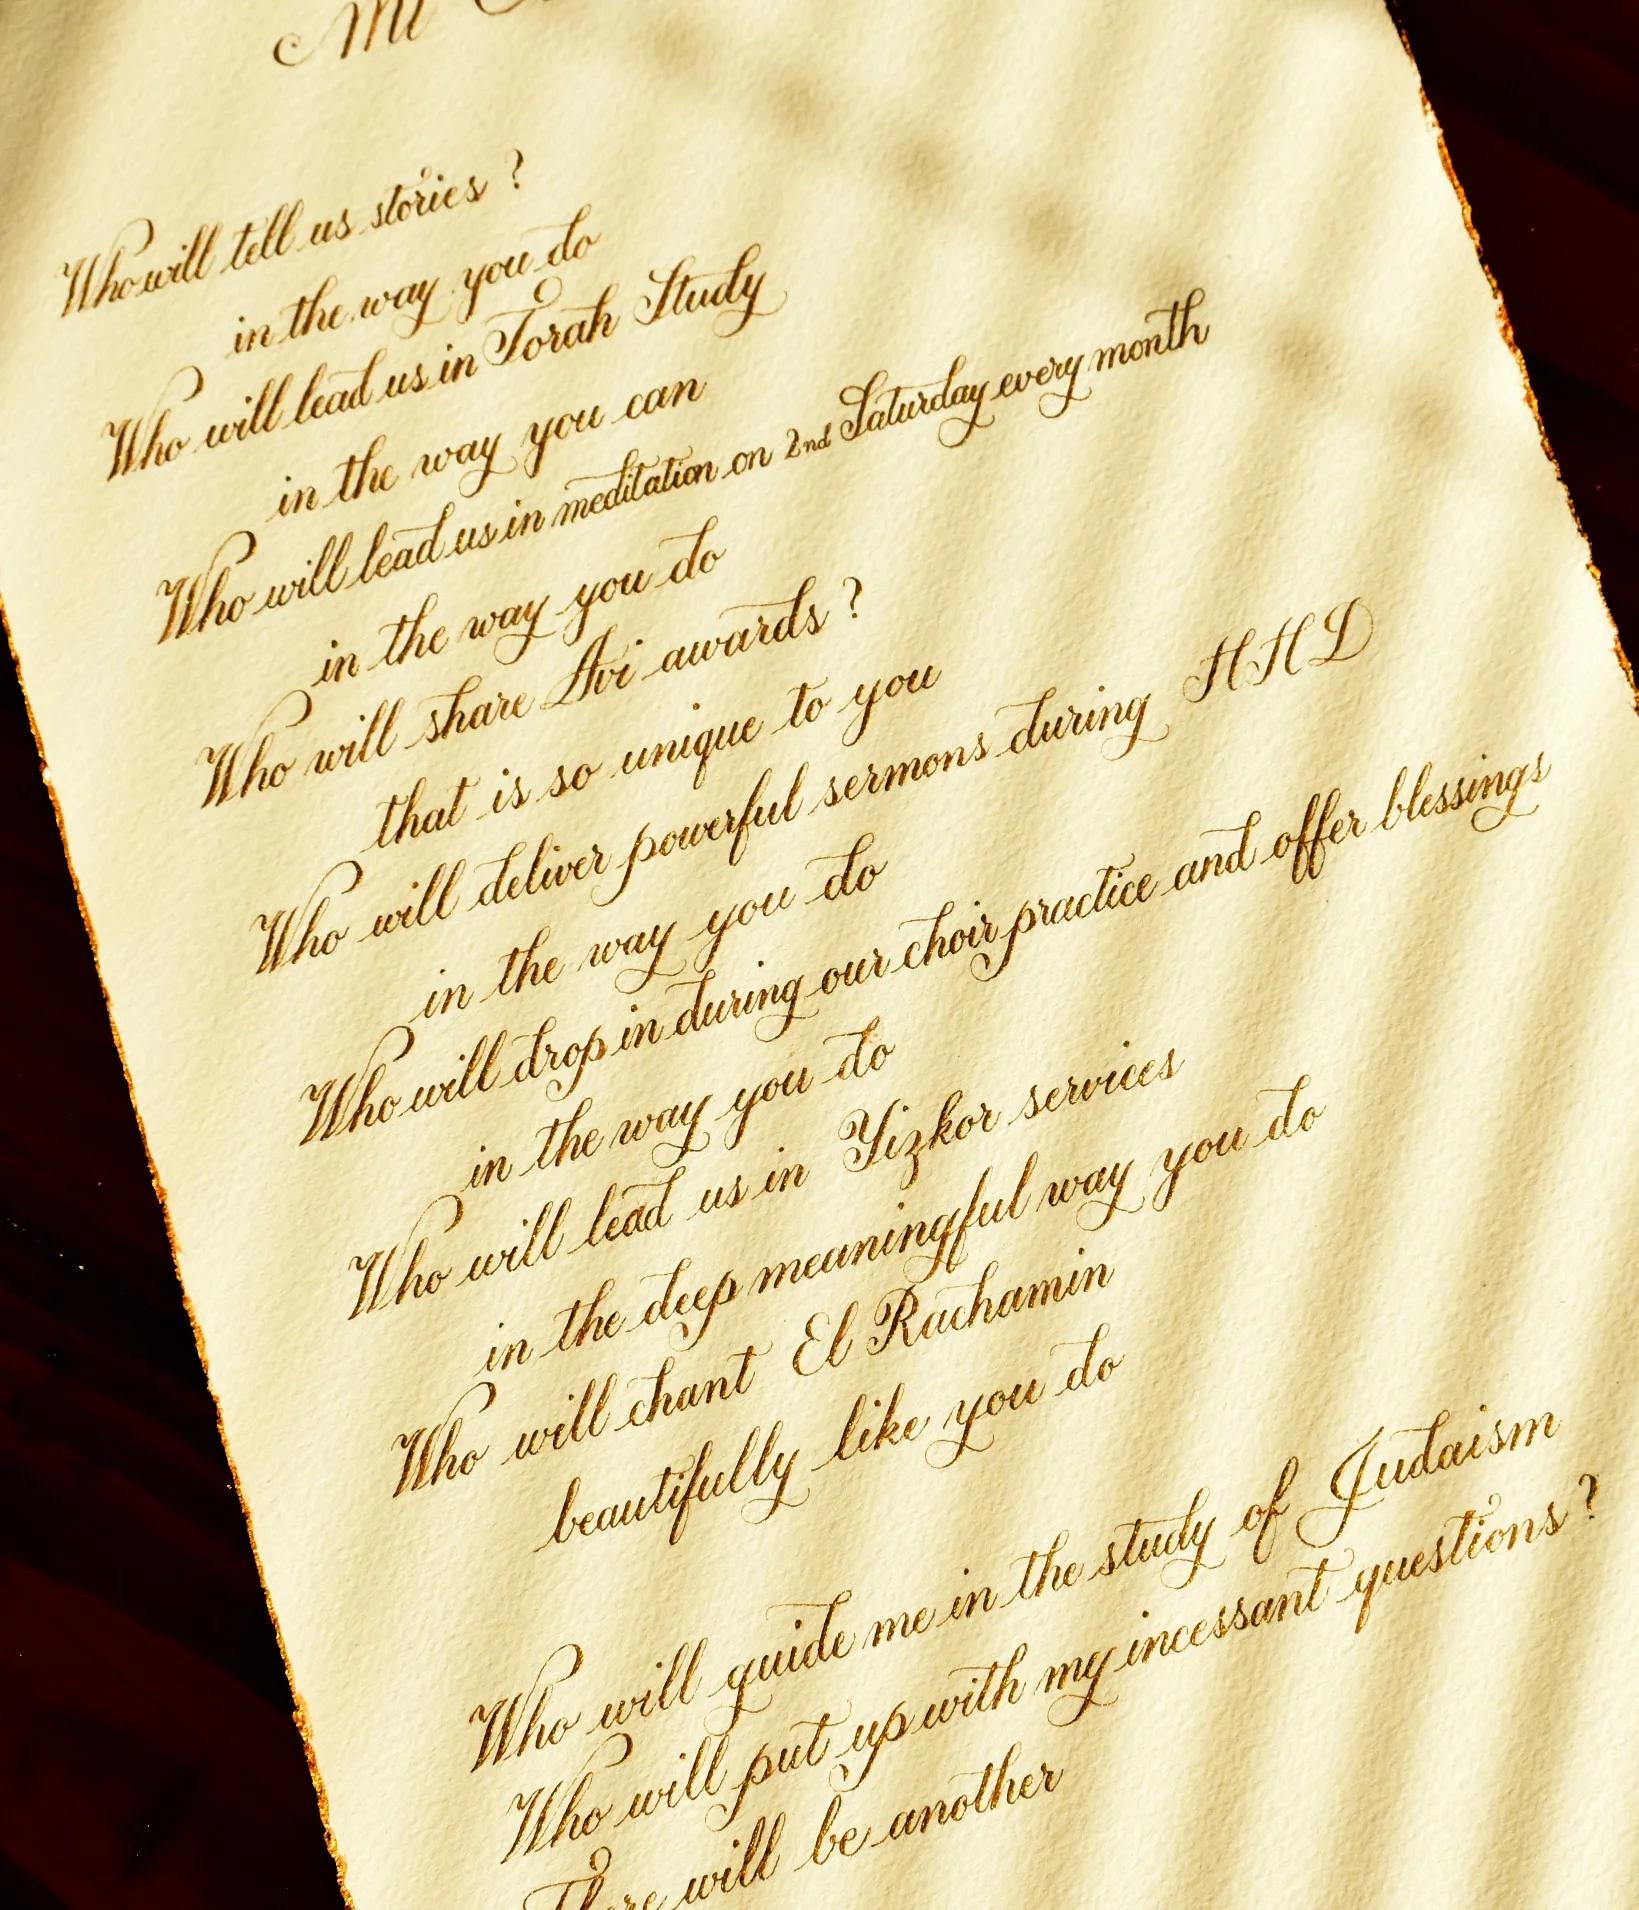 Mi
Who will tell us stories ?
in the way you do
Who will lead us in Torah Study
in the way you can
Who will lead us in meditation on 2nd Saturday every month
in the way you do
Who will share Avi awards ?
that is so unique to you
Who will deliver powerful sermons during HHD
in the way you do
Who will drop in during our choir practice and offer blessings
in the way you do
Who will lead us in Yizkor services
in the deep meaningful way you do
Who will chant El Rachamin
beautifully like you do
Who will guide me in the study of Judaism
Who will put up with my incessant questions ?
There will be another